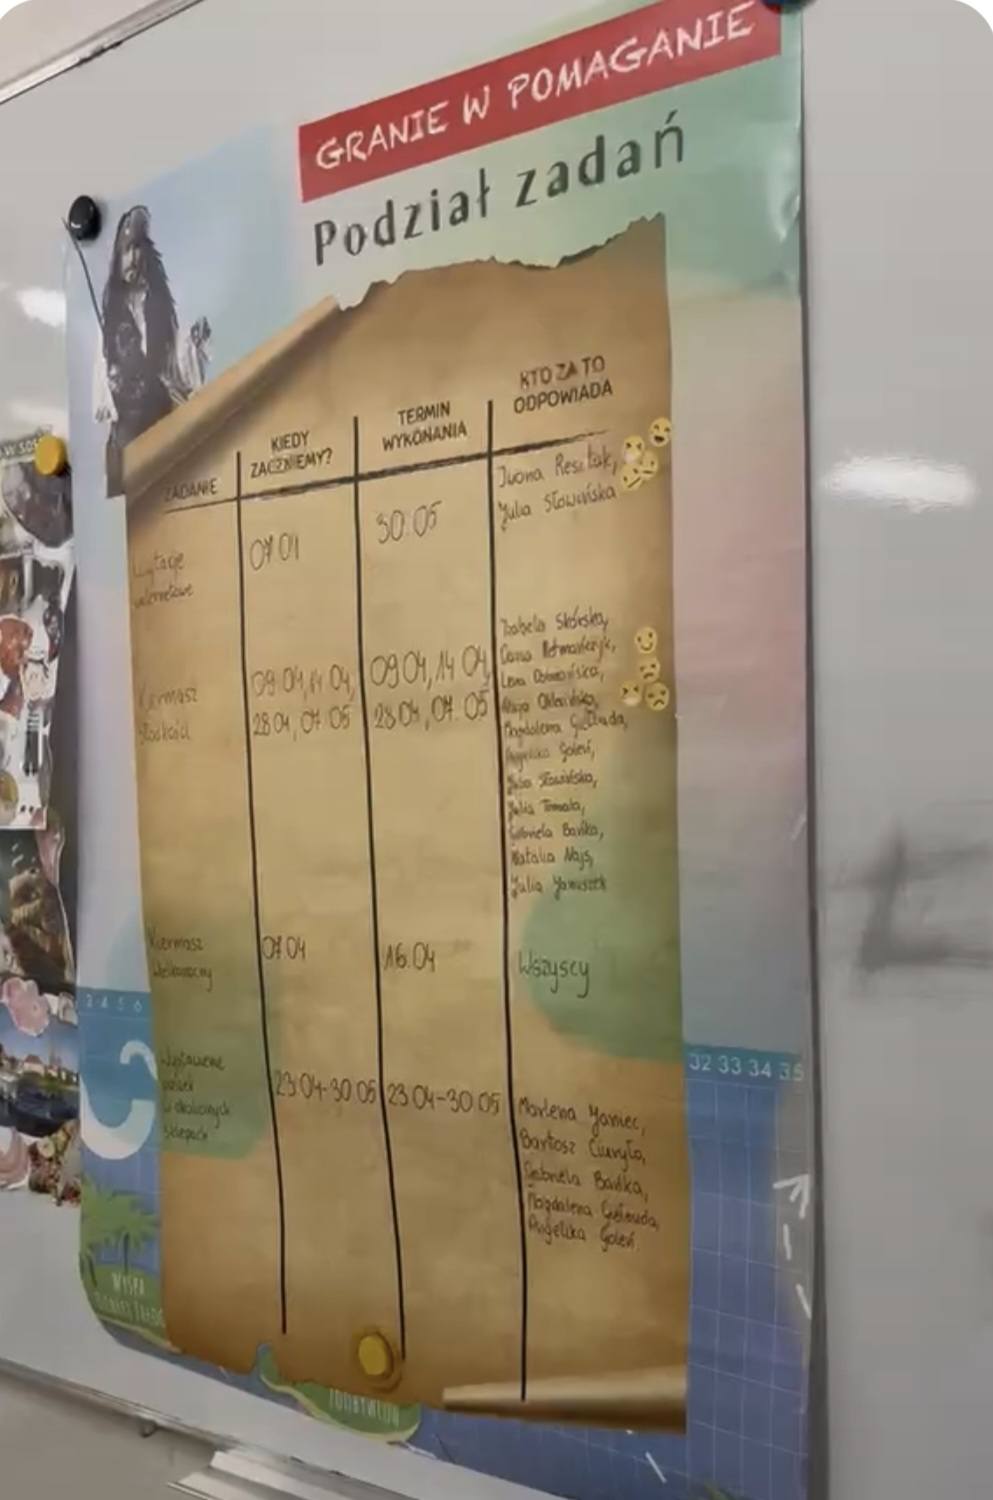 GRANIE W POMAGANIE
Podział zadań
ZADANIE
KIEDY
ZACZNIEMY?
TERMIN
WYKONANIA
KTO ZA TO
ODPOWIADA
internetowe
07.04
30.05
Iwona Resztak,
Julia Słowińska
Kiermasz
słodkości
09.04, 14.04,
28.04, 07.05
09.04, 14.04,
28.04, 07.05
Izabela Skórska,
Lena
Alicja
Magdalena
Angelika Goleń,
Julia Słowińska,
Julia Tomala,
Gabriela Bańka,
Natalia Najs,
Julia Januszek
Kiermasz
Wielkanocny
07.04
16.04
Wszyscy
puszek
w okolicznych
sklepach
23.04-30.05
23.04-30.05
Marlena Janiec,
Bartosz Ciuryło,
Gabriela Bańka,
Magdalena
Angelika Goleń
3 4 5 6
32 33 34 35
WYSPA